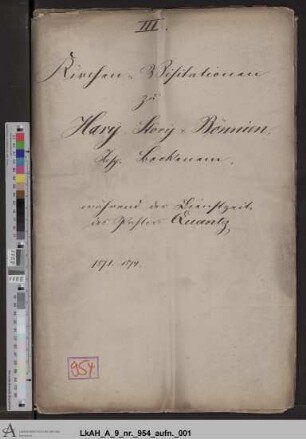 III.
Kirchen-Visitationen
zu
Hary, Störy u. Bönnien,
Bockenem,
während der Dienstzeit
des Pastors Quantz
1871. 1874.
954
LkAH_A_9_nr._954_aufn._001